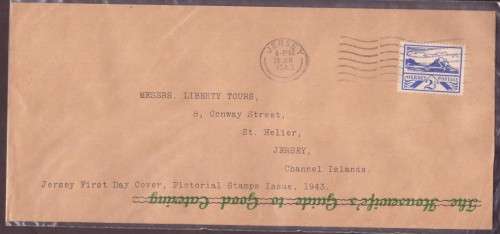 JERSEY
1943
JERSEY POSTAGE
2½
MESSRS. LIBERTY TOURS,
8, Conway Street,
St. Helier,
JERSEY,
Channel Islands.
Jersey First Day Cover, Pictorial Stamps Issue, 1943.
The Housewife's Guide to Good Catering